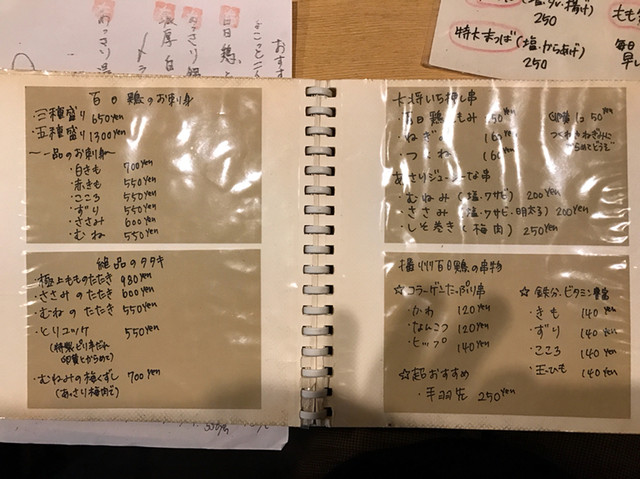 百日鶏のお刺身
・三種盛り 650yen
・五種盛り 1300yen
〜一品のお刺身〜
・白きも 700yen
・赤きも 550yen
・こころ 550yen
・ずり 550yen
・ささみ 600yen
・むね 550yen
絶品のタタキ
・極上もものたたき 980yen
・ささみのたたき 600yen
・むねのたたき 550yen
・とりユッケ 550yen
(特製ピリ辛だれ
卵黄とからめて)
・むねみの梅くずし 700yen
(あっさり梅肉で)
大将いち押し串
百日鶏もみ 50yen
・ねぎ 160yen
・つくね 160yen
1コ 50yen
あっさりジューシーな串
・むねみ (塩・ワサビ) 200yen
・ささみ (塩・ワサビ・明太子) 200yen
・しそ巻き (梅肉) 250yen
百日鶏の串物
☆コラーゲンたっぷり串
・かわ 120yen
・なんこつ 120yen
・ヒップ 140yen
☆超おすすめ
・手羽先 250yen
☆鉄分・ビタミン豊富
・きも 140yen
・ずり 140yen
・こころ 140yen
・玉ひも 140yen
250
特大手つば(塩・からあげ)
250
もも
毎日
早い